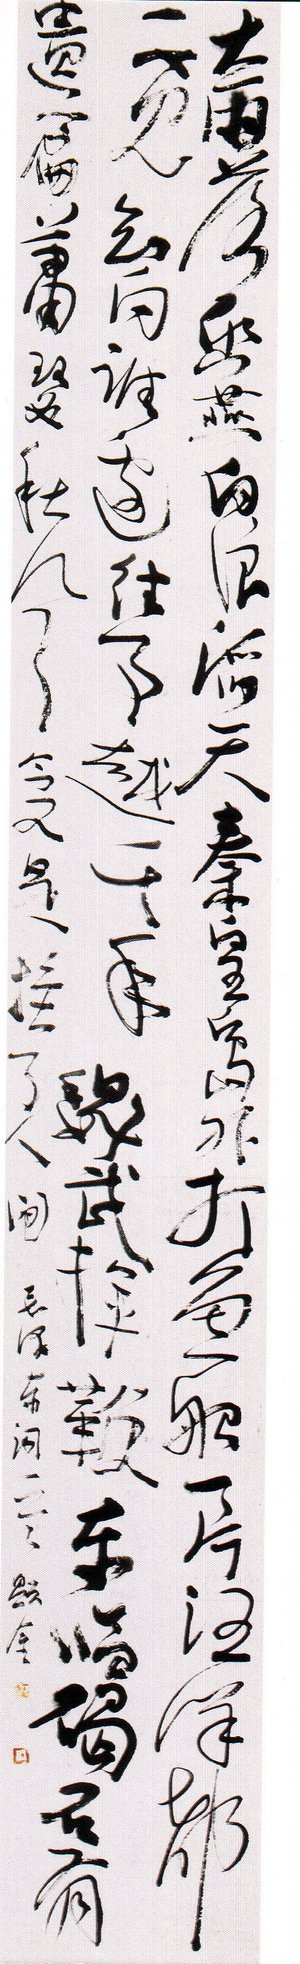 大雨落幽燕白浪滔天秦皇島外打魚船一片汪洋都
不見知向誰邊往事越千年魏武揮鞭東臨碣石有
遺篇蕭瑟秋風今又是換了人間 毛澤東詞